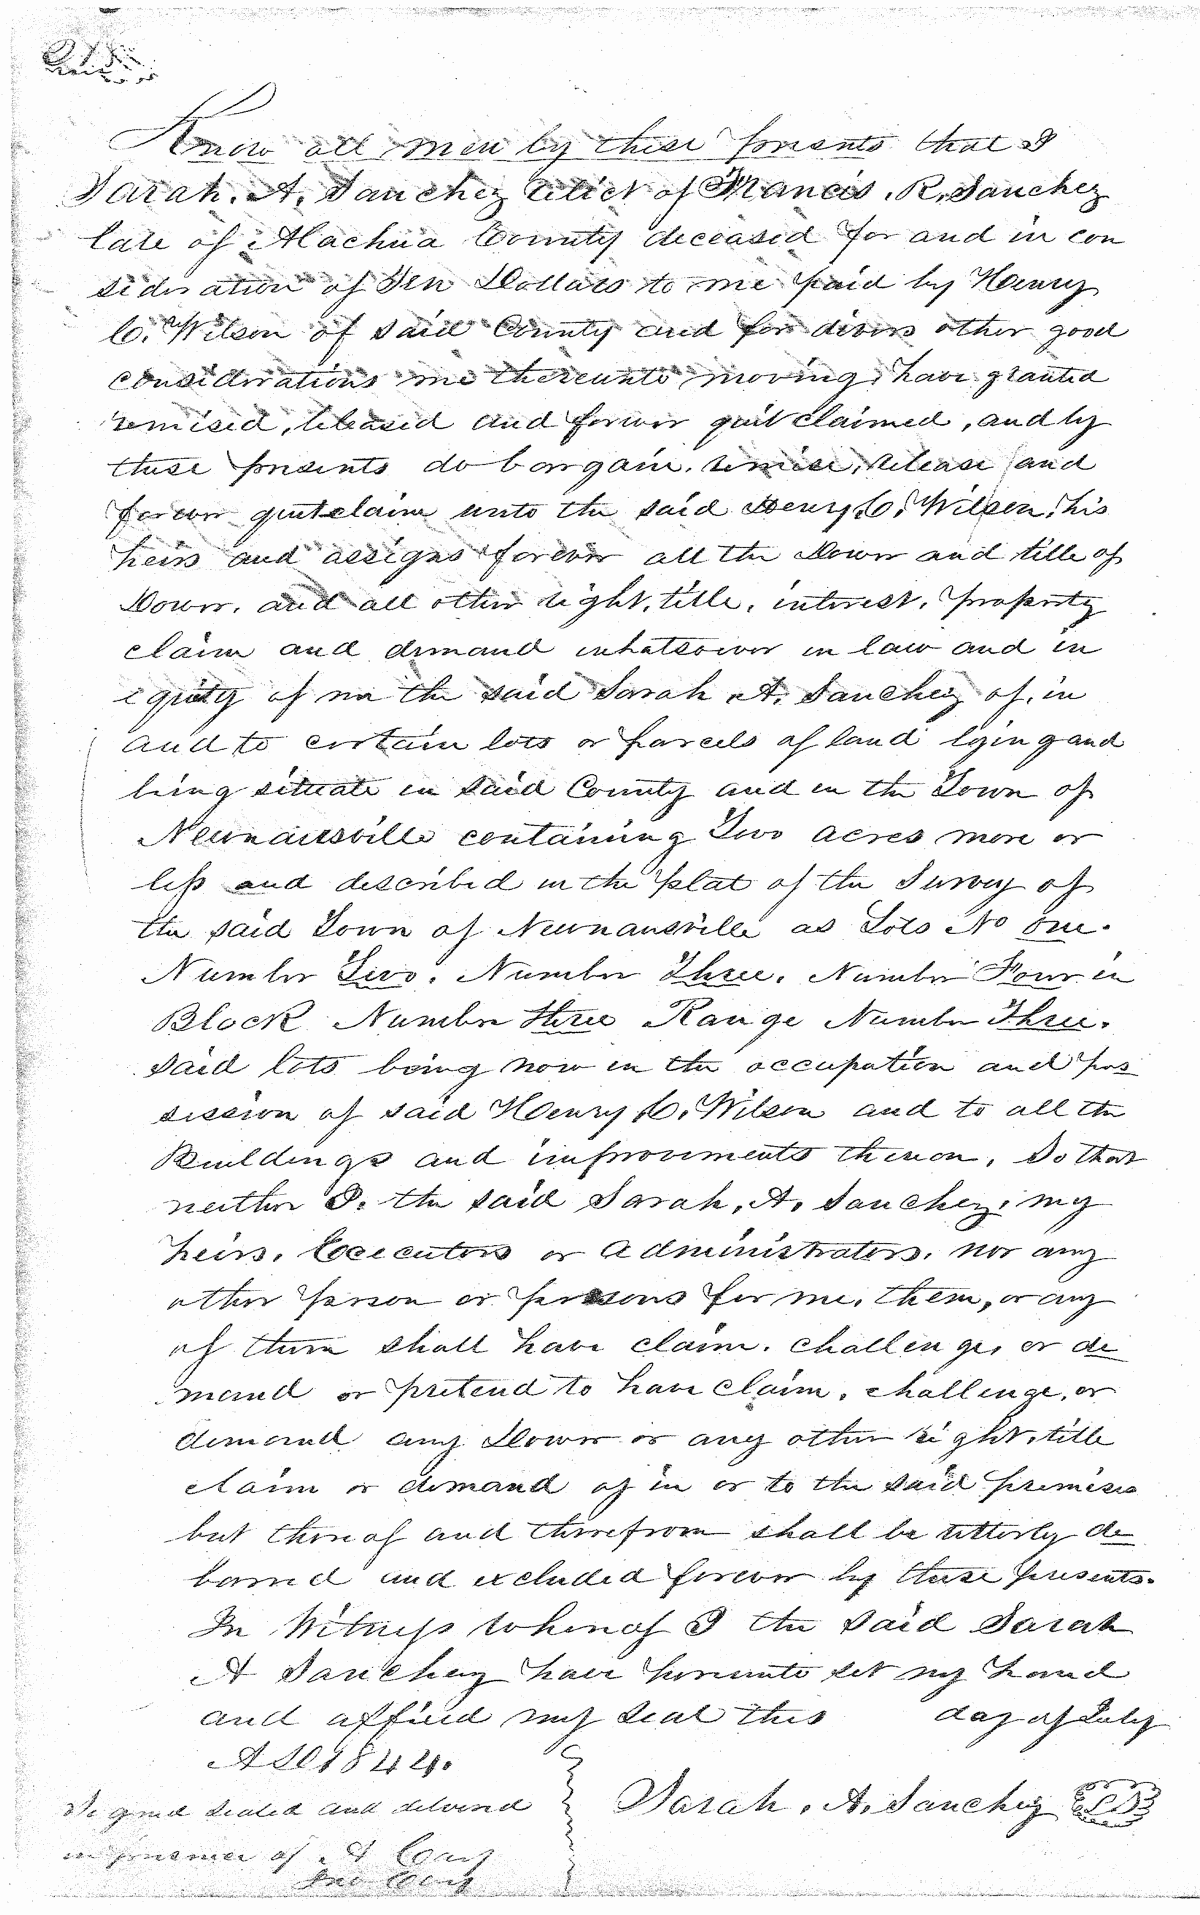 Know all men by these presents that I
Sarah. A. Sanchez Relict of Francis. R. Sanchez
late of Alachua County deceased for and in con
sideration of Ten Dollars to me paid by Henry
C. Wilson of said County and for divers other good
considerations me thereunto moving, have granted
remised, released and forever quit claimed, and by
these presents do bargain. remise, release and
forever quitclaim unto the said Henry. C. Wilson, his
heirs and assigns forever all the Dower and title of
Dower. and all other right, title, interest, property
claim and demand whatsoever in law and in
equity of me the said Sarah A. Sanchez of, in
and to certain lots or parcels of land lying and
being situate in said County and in the Town of
Newnansville containing Two acres more or
less and described in the plat of the Survey of
the said Town of Newnansville as Lots No One.
Number Two. Number Three. Number Four in
Block Number three Range Number Three.
said lots being now in the occupation and pos
session of said Henry C. Wilson and to all the
Buildings and improvements thereon. So that
neither I. the said Sarah. A. Sanchez, my
heirs. Executors or administrators. nor any
other person or persons for me, them, or any
of them shall have claim. challenge, or de
mand or pretend to have claim, challenge, or
demand any Dower or any other right, title
claim or demand of in or to the said premises
but thereof and therefrom shall be utterly de
barred and excluded forever by these presents.
In Witness whereof I the said Sarah
A Sanchez have hereunto set my hand
and affixed my seal this day of July
A D 1844.
Signed sealed and delivered
in presence of
Sarah. A. Sanchez LS